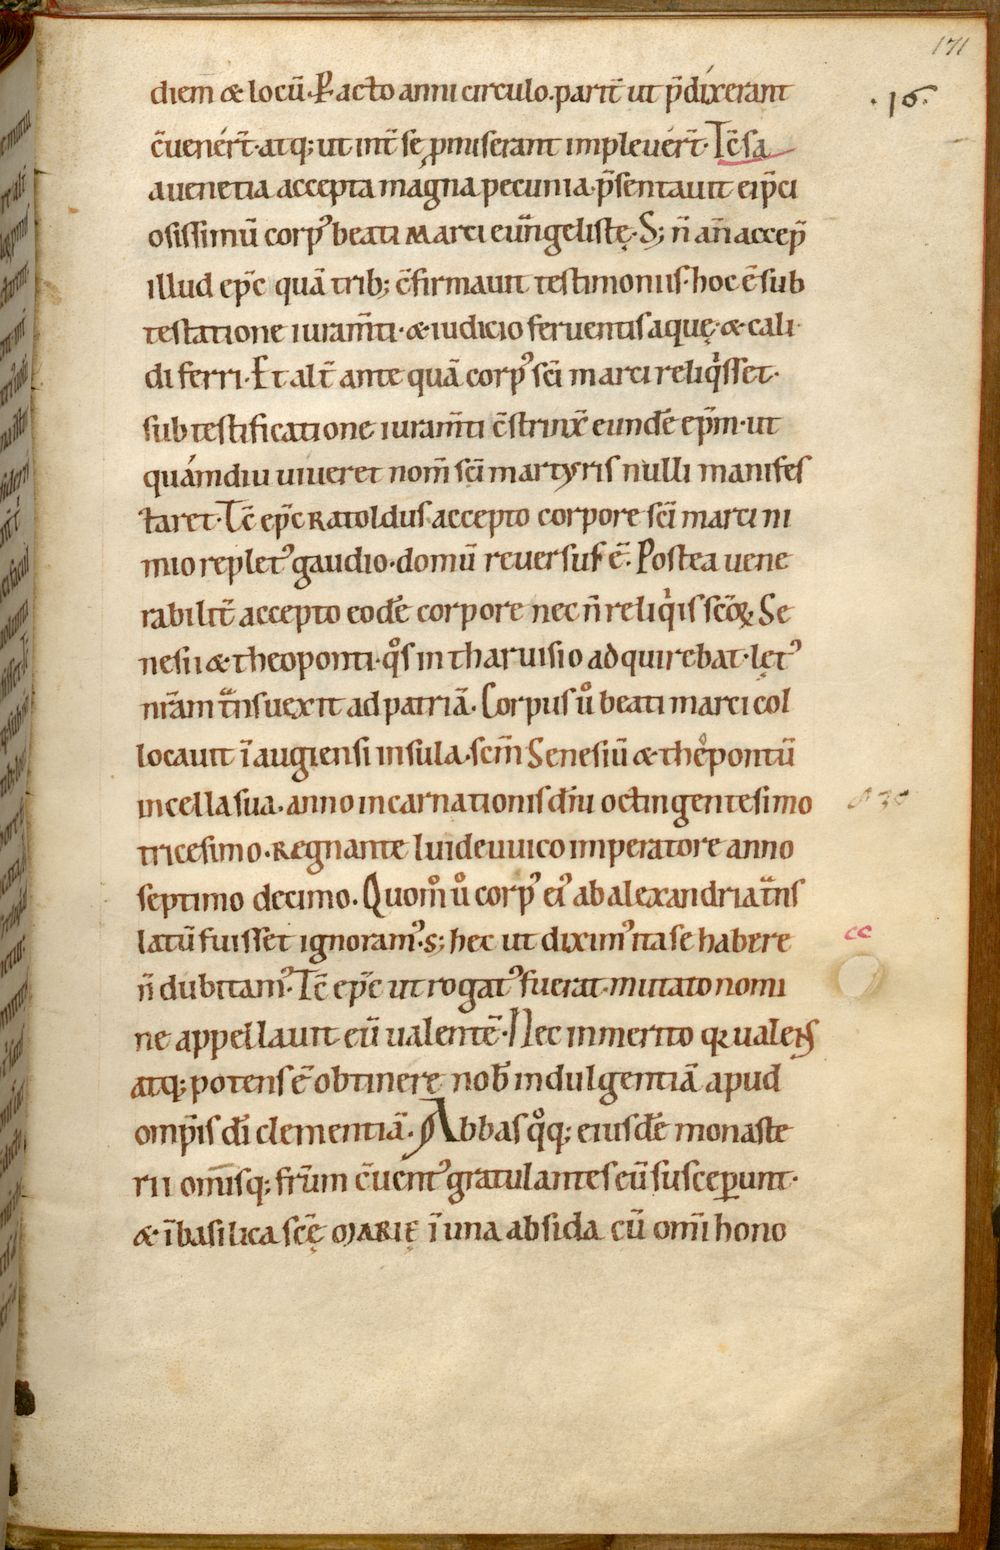 171
diem̅ & locū. P̲acto anni circulo. parit̅ ut p̅dixerant
.16.
c̅uenér̅t. atq; ut int̅ se p̲miserant impleuér̅t. Tc̅ sa
a uenetia accepta magna pecunia. p̅sentauit ei p̅ci
osissimū corpꝰ beati marci euu̅gelistę. S; n̅ an̅ accep̅
illud ep̅c quā trib; c̅firmauit testimoniis. hoc ē sub
testatione iuram̅ti. & iudicio feruentis aquę. & cali
di ferri. Et alt̅ ante quā corpꝰ sc̅i marci reliqͥsset.
sub testificatione iuram̅ti c̅strinx̅ eundē ep̅m. ut
quámdiu uiueret nom̅ sc̅i martyris nulli manifes
taret. Tc̅ ep̅c ratoldus accepto corpore sc̅i marci ni
mio repletꝰ gaudio. domū reuersus ē. Postea uene
rabilit̅ accepto eodē corpore nec n̅ reliqͥis sc̅oꝝ Se
nesii & theoponti. qͦs in tharuisio adquirebat. lętꝰ
nr̅am tᷓnsuexit ad patriā. Corpus uͦ beati marci col
locauit ī augiensi insula. sc̅m Senesiū & theͦpontū
in cella sua. anno incarnationis dn̅i octingentesimo
830
tricesimo. regnante luideuuico imperatore anno
septimo decimo. Quom̊ uͦ corpꝰ eiꝰ ab alexandria tᷓns
latū fuisset ignoramꝰ. s; hec ut diximꝰ ita se habere
cc
n̅ dubitamꝰ. Tc̅ ep̅c ut rogatꝰ fuerat. mutato nomi
ne appellauit eū ualentē. Nec inmerito qꝛ ualens
atq; potens ē obtinere nob̅ indulgentiā apud
omp̅is dī clementiā. Abbas qͦq; eiusdē monaste
rii omīsq; fr̅um c̅uentꝰ gratulantes eū suscep̲unt.
& ī basilica sc̅ę marię ī una absida cū om̅i hono